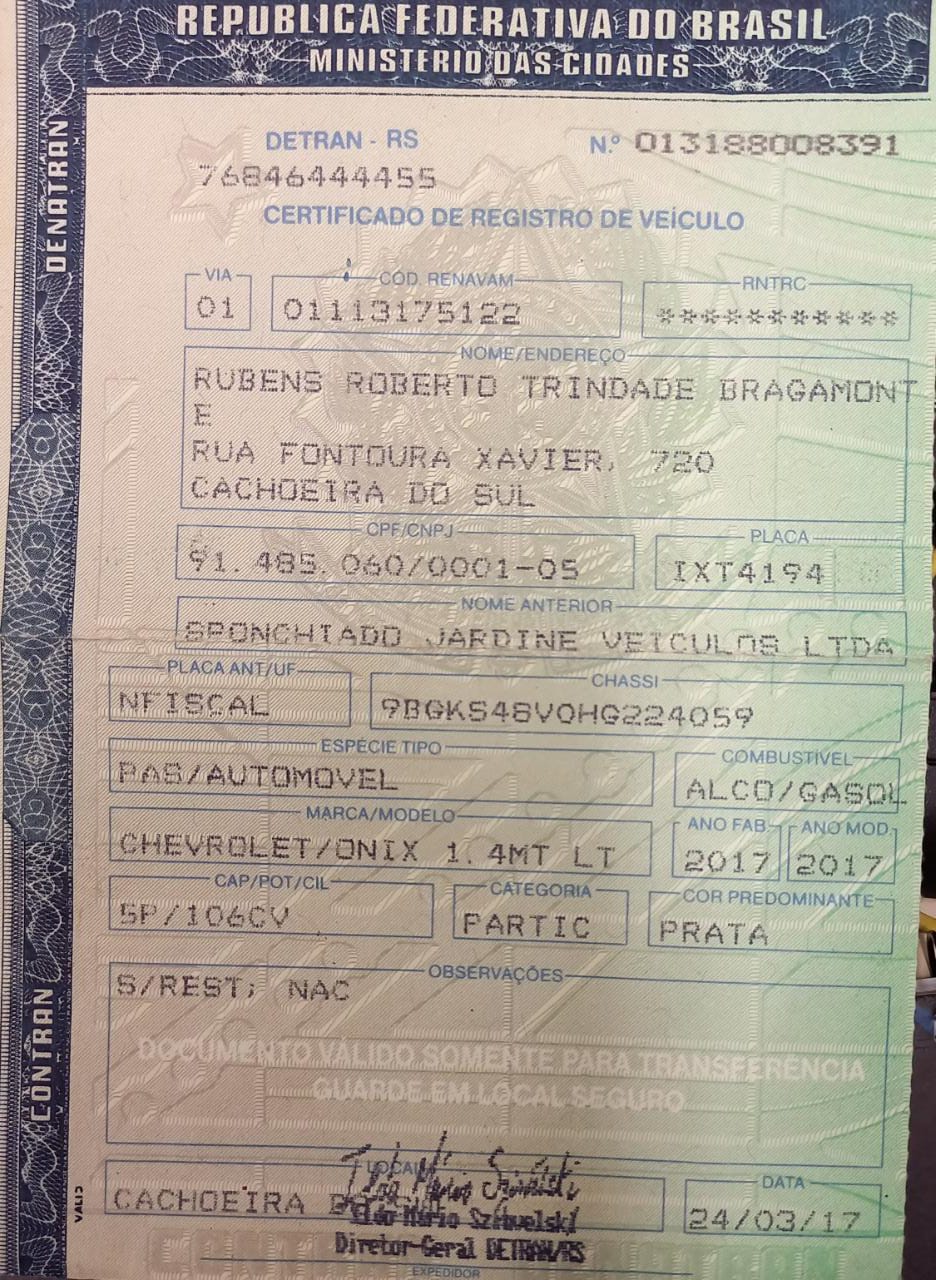 REPÚBLICA FEDERATIVA DO BRASIL
MINISTÉRIO DAS CIDADES
DENATRAN
CONTRAN
DETRAN - RS
N.º 013188008391
76846444455
CERTIFICADO DE REGISTRO DE VEÍCULO
VIA
CÓD. RENAVAM
RNTRC
01
01113175122
***********
NOME/ENDEREÇO
RUBENS ROBERTO TRINDADE BRAGAMONT
E
RUA FONTOURA XAVIER, 720
CACHOEIRA DO SUL
CPF/CNPJ
PLACA
91.485.060/0001-05
IXT4194
NOME ANTERIOR
SPONCHIADO JARDINE VEICULOS LTDA
PLACA ANT/UF
CHASSI
NFISCAL
9BGKS48V0HG224059
ESPÉCIE TIPO
COMBUSTÍVEL
PAS/AUTOMOVEL
ALCO/GASOL
MARCA/MODELO
ANO FAB.
ANO MOD.
CHEVROLET/ONIX 1.4MT LT
2017
2017
CAP/POT/CIL
CATEGORIA
COR PREDOMINANTE
5P/106CV
PARTIC
PRATA
OBSERVAÇÕES
S/REST; NAC
DOCUMENTO VÁLIDO SOMENTE PARA TRANSFERÊNCIA
GUARDE EM LOCAL SEGURO
LOCAL
DATA
CACHOEIRA
24/03/17
Diretor-Geral DETRAN/RS
EXPEDIDOR